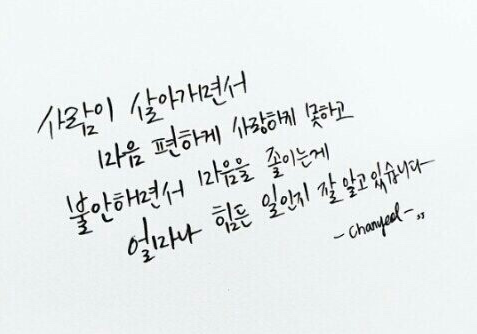 사람이 살아가면서
마음 편하게 사랑하지 못하고
불안해하면서 마음을 졸이는게
얼마나 힘든 일인지 잘 알고 있습니다
- chanyeol - ,,